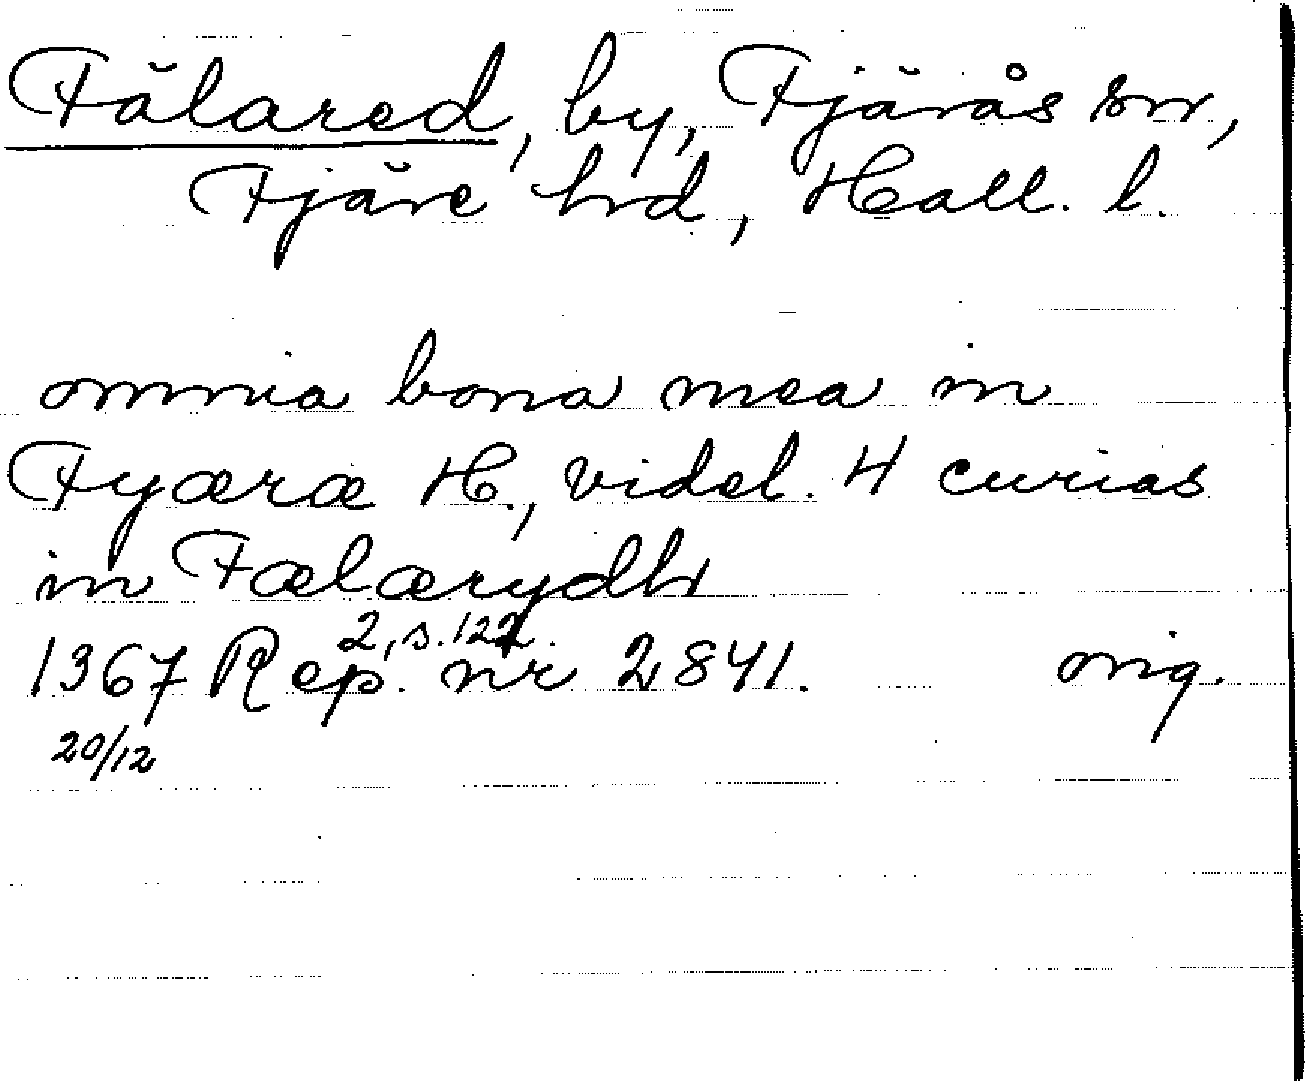 Fälared, by, Fjärås sn,
Fjäre hd, Hall. l.
omnia bona mea in
Fyæræ H., videl. 4 curias
in Fælærydh
2, s. 122.
1367 Rep. nr 2841. orig.
20/12